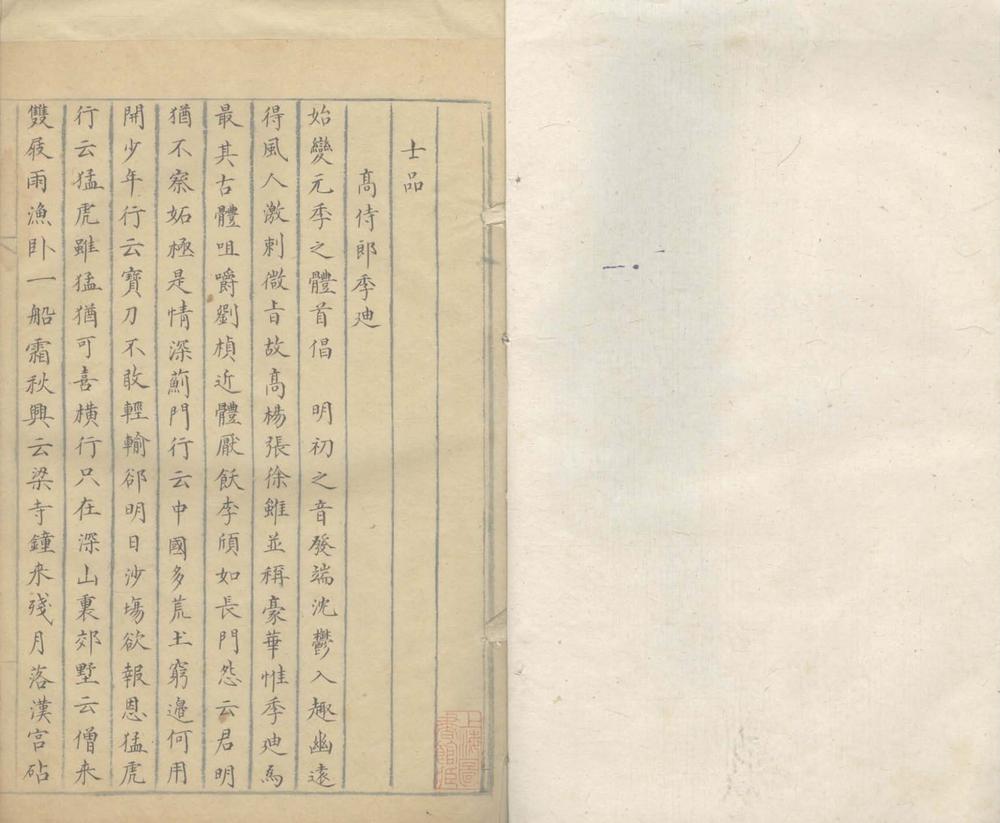 士品
高侍郎季迪
始變元季之體首倡　明初之音發端沈鬱入趣幽遠
得風人激刺微㫖故高楊張徐雖並稱豪華惟季迪爲
最其古體咀嚼劉楨近體厭飫李頎如長門怨云君明
猶不察妬極是情深薊門行云中國多荒土窮邉何用
開少年行云寶刀不敢輕輸郤明日沙塲欲報恩猛虎
行云猛虎雖猛猶可喜橫行只在深山裏郊墅云僧来
雙屐雨漁卧一船霜秋興云梁寺鐘来殘月落漢宫砧
上海圖書館藏